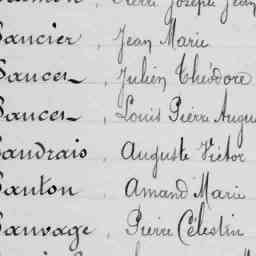 Pierre Joseph Jean
Saucier, Jean Marie
Sauces, Julien Théodore
Sauces, Louis Pierre Augu
Saudrais, Auguste Victor
Santon, Amand Marie
Sauvage, Pierre Célestin